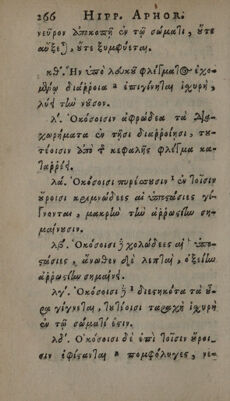 266 HIPP. APHOR.
νεῦρον ἀποκοπῇ ἐν τῷ σώματι, ὔτε
αὔξε), ὔτε ξυμφύεται.
κθ'. Ἢν ὑπὸ λευκῦ φλέγματος ἐχο-
μένῳ διάρροια ἐπιγένηται ἰχυρὴ,
λύει τὴν νῦσον.
λ'. Ὁκόσοισι ἀφρώδεα τὰ δια-
χωρήματα ἐν τῇσι διαρροίῃσι, τυ-
τέοισιν ἀπὸ τ κεφαλῆς φλέγμα κα-
ταρρέει.
λα'. Ὁκόσοισι πυρέσσυσιν ἐν τοῖσιν
ὔροισι κριμνώδεες αἱ ὑποστάσιες γί-
γνονται, μακρὴν τὴν ἀρρωστίην ση-
μαίνυσιν.
λβ'. Ὁκόσοισι ἢ χολώδεες αἱ ὑπο-
στάσιες, ἄνωθεν δὲ λεπταὶ, ὀξείην
ἀρρωστίην σημαίνει.
λγ'. Ὁκόσοισι ἢ διεστηκότα τὰ ὖ-
ρα γίγνεται, τυτέοισι ταραχὴ ἰχυρὴ
ἐν τῷ σώματί ἐστιν.
λδ'. Ὁκόσοισι δὲ ἐπὶ τοῖσιν ὔροι-
σιν ἐφίσταται πομφόλυγες, νε-